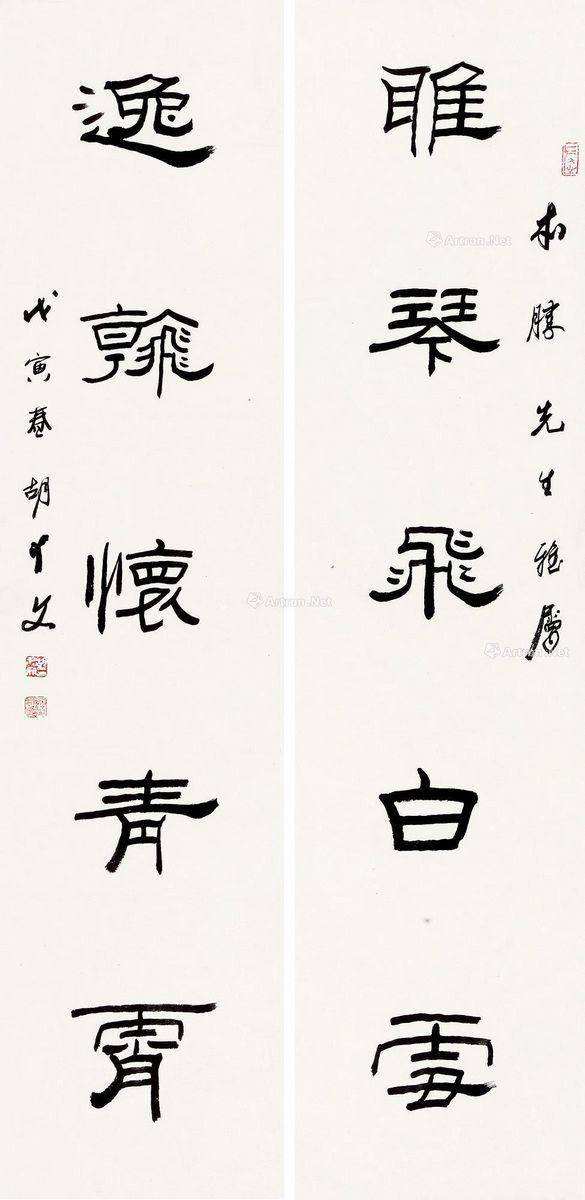 勝先生雅屬
雅琴飛白雪
逸翰懷青霄
戊寅春胡文
Artron.Net
Artron.Net
Artron.Net